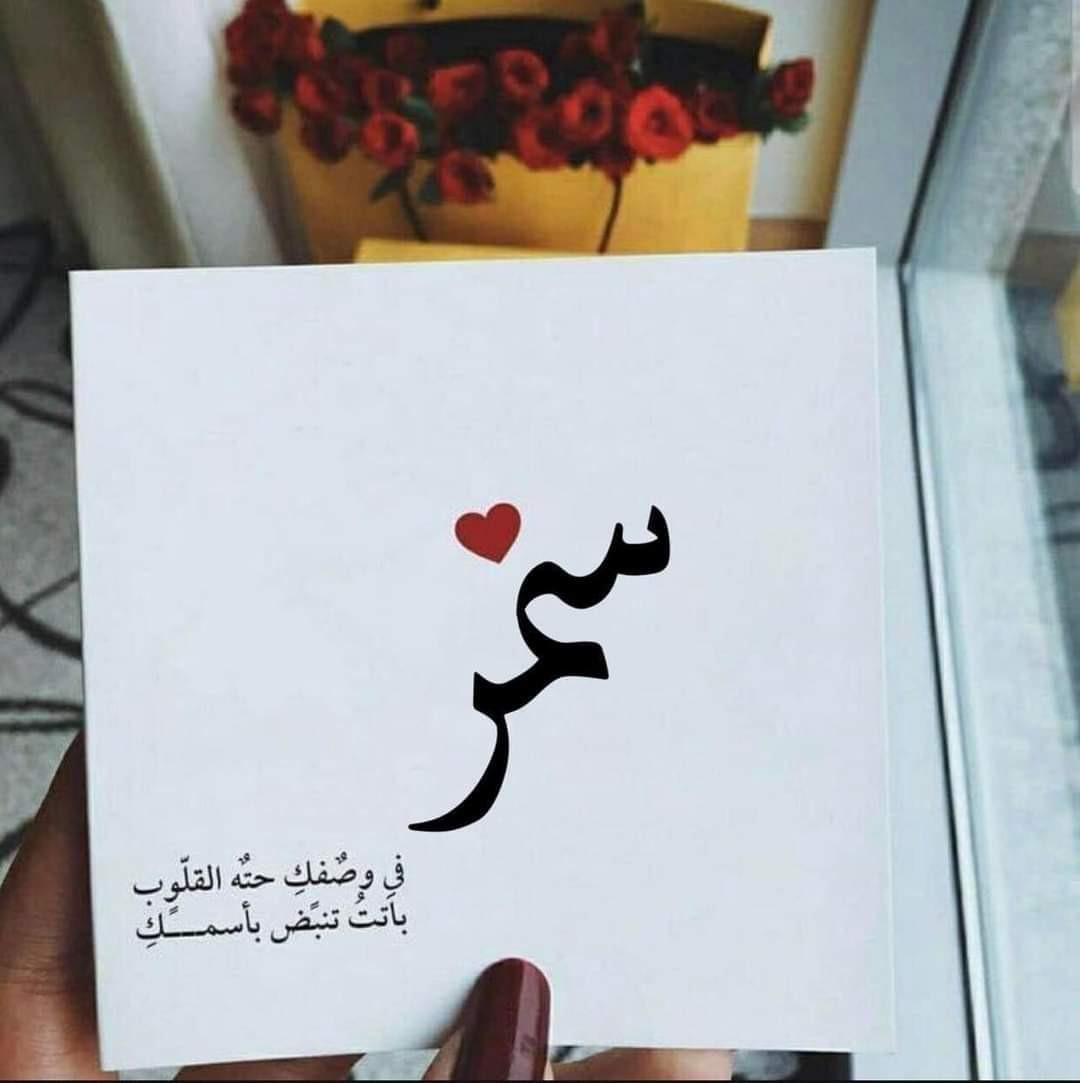 سمر
في وصٌفكِ حتهٌ القلّوب
باتتُ تنبًض بأسمـــًـكِ